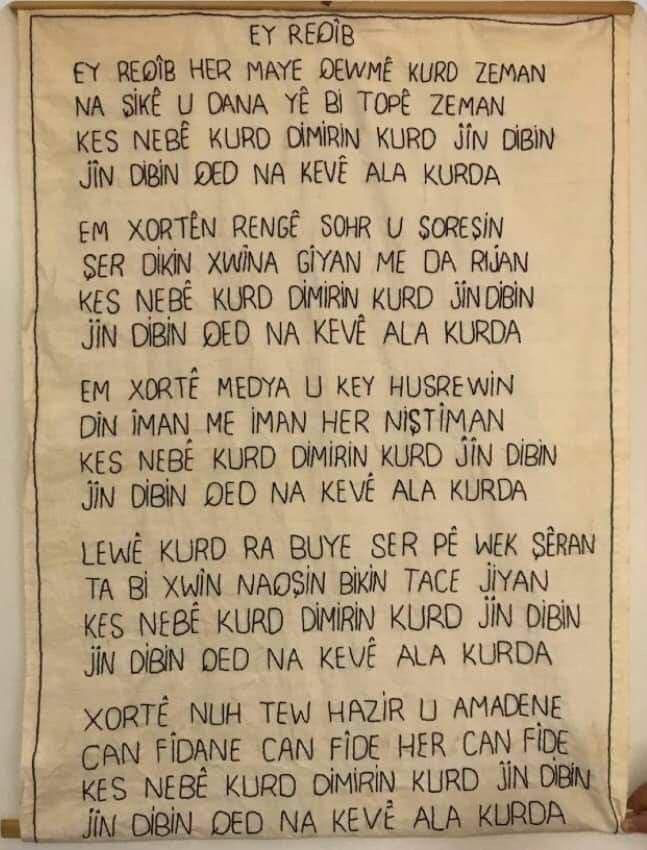 EY REQÎB
EY REQÎB HER MAYE QEWMÊ KURD ZEMAN
NA ŞİKÊ U DANA YÊ Bİ TOPÊ ZEMAN
KES NEBÊ KURD DİMİRİN KURD JÎN DİBİN
JÎN DİBİN QED NA KEVÊ ALA KURDA
EM XORTÊN RENGÊ SOHR U ŞOREŞİN
ŞER DİKİN XWÎNA GÎYAN ME DA RIJAN
KES NEBÊ KURD DİMİRİN KURD JÎN DİBİN
JÎN DİBİN QED NA KEVÊ ALA KURDA
EM XORTÊ MEDYA U KEY HUSREWİN
DÎN ÎMAN ME İMAN HER NİŞTİMAN
KES NEBÊ KURD DİMİRİN KURD JÎN DİBİN
JÎN DİBİN QED NA KEVÊ ALA KURDA
LEWÊ KURD RA BUYE SER PÊ WEK ŞÊRAN
TA Bİ XWÎN NAQŞİN BİKİN TACE JİYAN
KES NEBÊ KURD DİMİRİN KURD JÎN DİBİN
JÎN DİBİN QED NA KEVÊ ALA KURDA
XORTÊ NUH TEW HAZİR U AMADENE
CAN FÎDANE CAN FÎDE HER CAN FÎDE
KES NEBÊ KURD DİMİRİN KURD JÎN DİBİN
JÎN DİBİN QED NA KEVÊ ALA KURDA